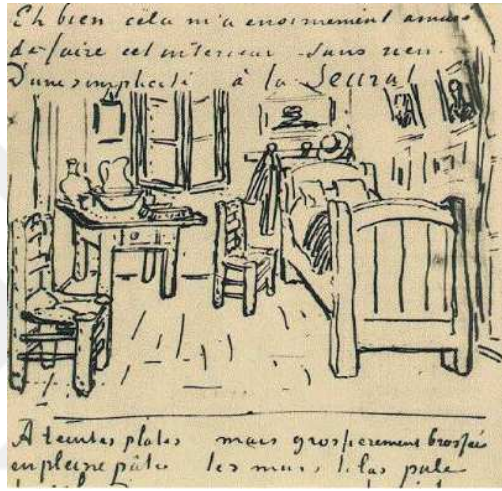 Eh bien cela m'a enormément amusé
de faire cet interieur sans rien.
D'une simplicité à la Seurat
A teintes plates mais grossierement brossées
en pleine pâte les murs lilas pale